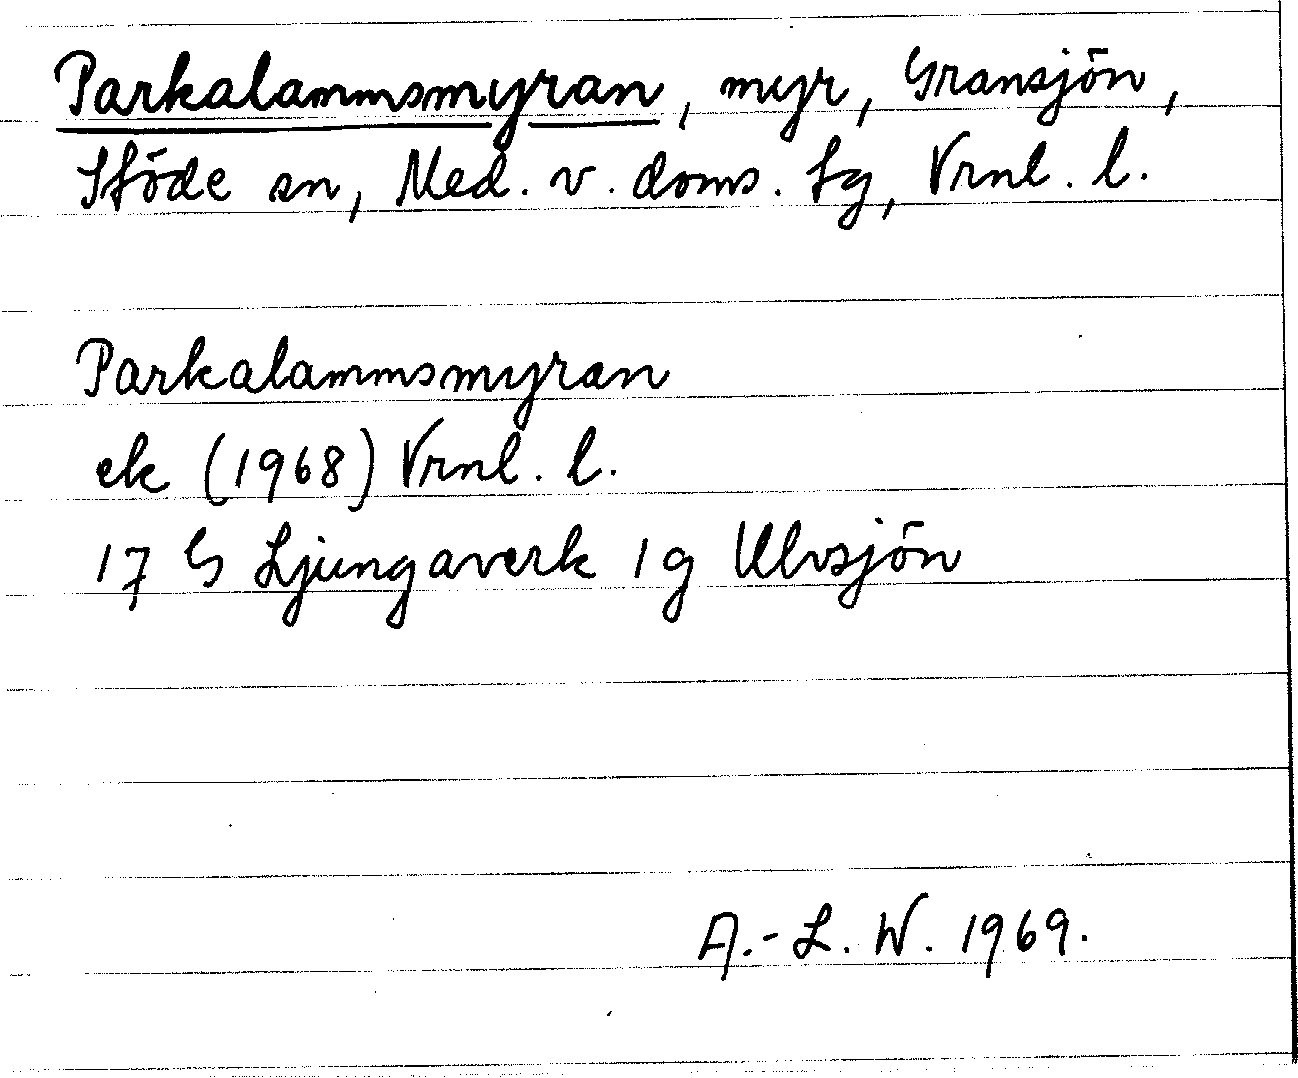 Parkalammsmyran, myr, Gransjön,
Stöde sn, Med. v. doms. tg, Vrnl. l.
Parkalammsmyran
ek (1968) Vrnl. l.
17 G Ljungaverk 1g Ulvsjön
A.-L. W. 1969.